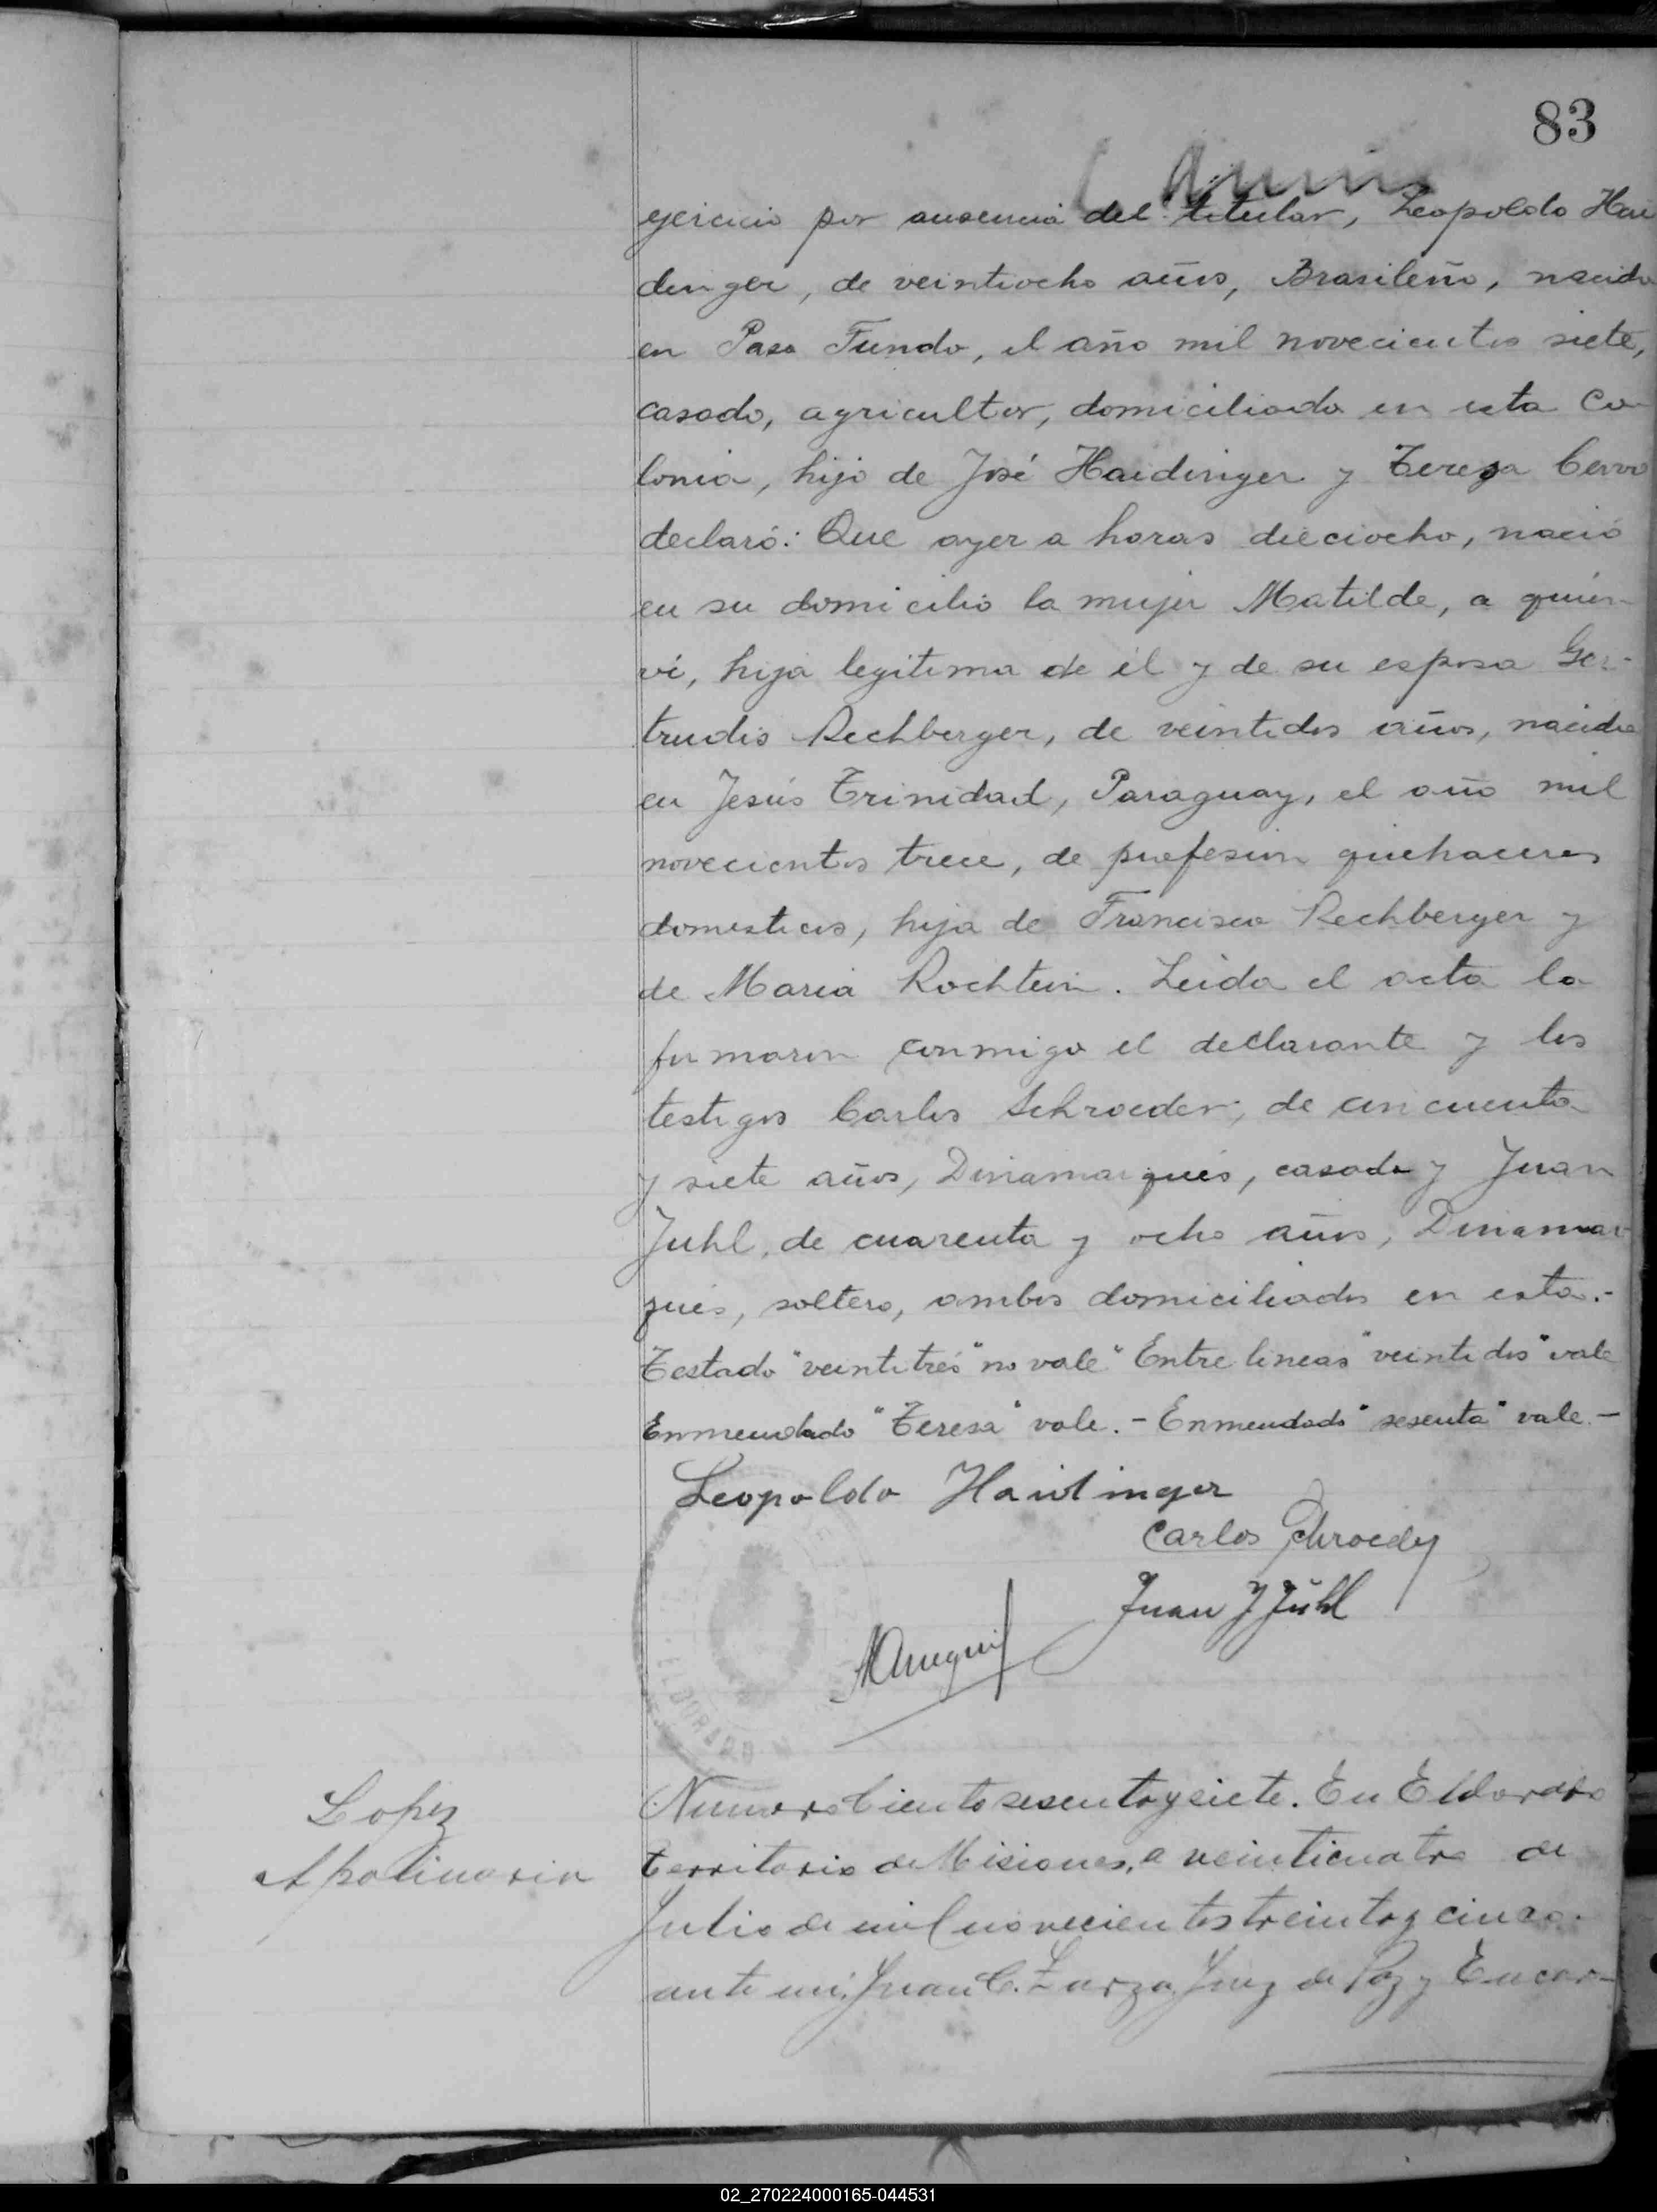 83
ejercicio por ausencia del titular, Leopoldo Hai
dinger, de veintiocho años, Brasileño, nacido
en Paso Fundo, el año mil novecientos siete,
casado, agricultor, domiciliado en esta Co
lonia, hijo de José Haidinger y Teresa Cerro
declaró: Que ayer a horas dieciocho, nació
en su domicilio la mujer Matilde, a quién
ví, hija legítima de él y de su esposa Ger-
trudis Rechberger, de veintidos años, nacida
en Jesús Trinidad, Paraguay, el año mil
novecientos trece, de profesion quehaceres
domesticos, hija de Francisco Rechberger y
de Maria Rochtein. Leida el acta la
firmaron conmigo el declarante y los
testigos Carlos Schroeder, de cincuenta
y siete años, Dinamarqués, casado y Juan
Juhl, de cuarenta y ocho años, Dinamar
qués, soltero, ambos domiciliados en esta.-
Testado "veintitrés" no vale" Entre lineas "veintidos" vale
Enmendado "Teresa" vale.- Enmendado "sesenta" vale.-
Leopoldo Haidinger
Carlos Schroeder
Juan J Juhl
ELDORADO
Lopez
Apolinaria
Numero Ciento sesenta y siete. En Eldorado
Territorio de Misiones, a veinticuatro de
Julio de mil novecientos treinta y cinco.
ante mi, Juan C. Zarza Juez de Paz y Encar-
02_270224000165-044531